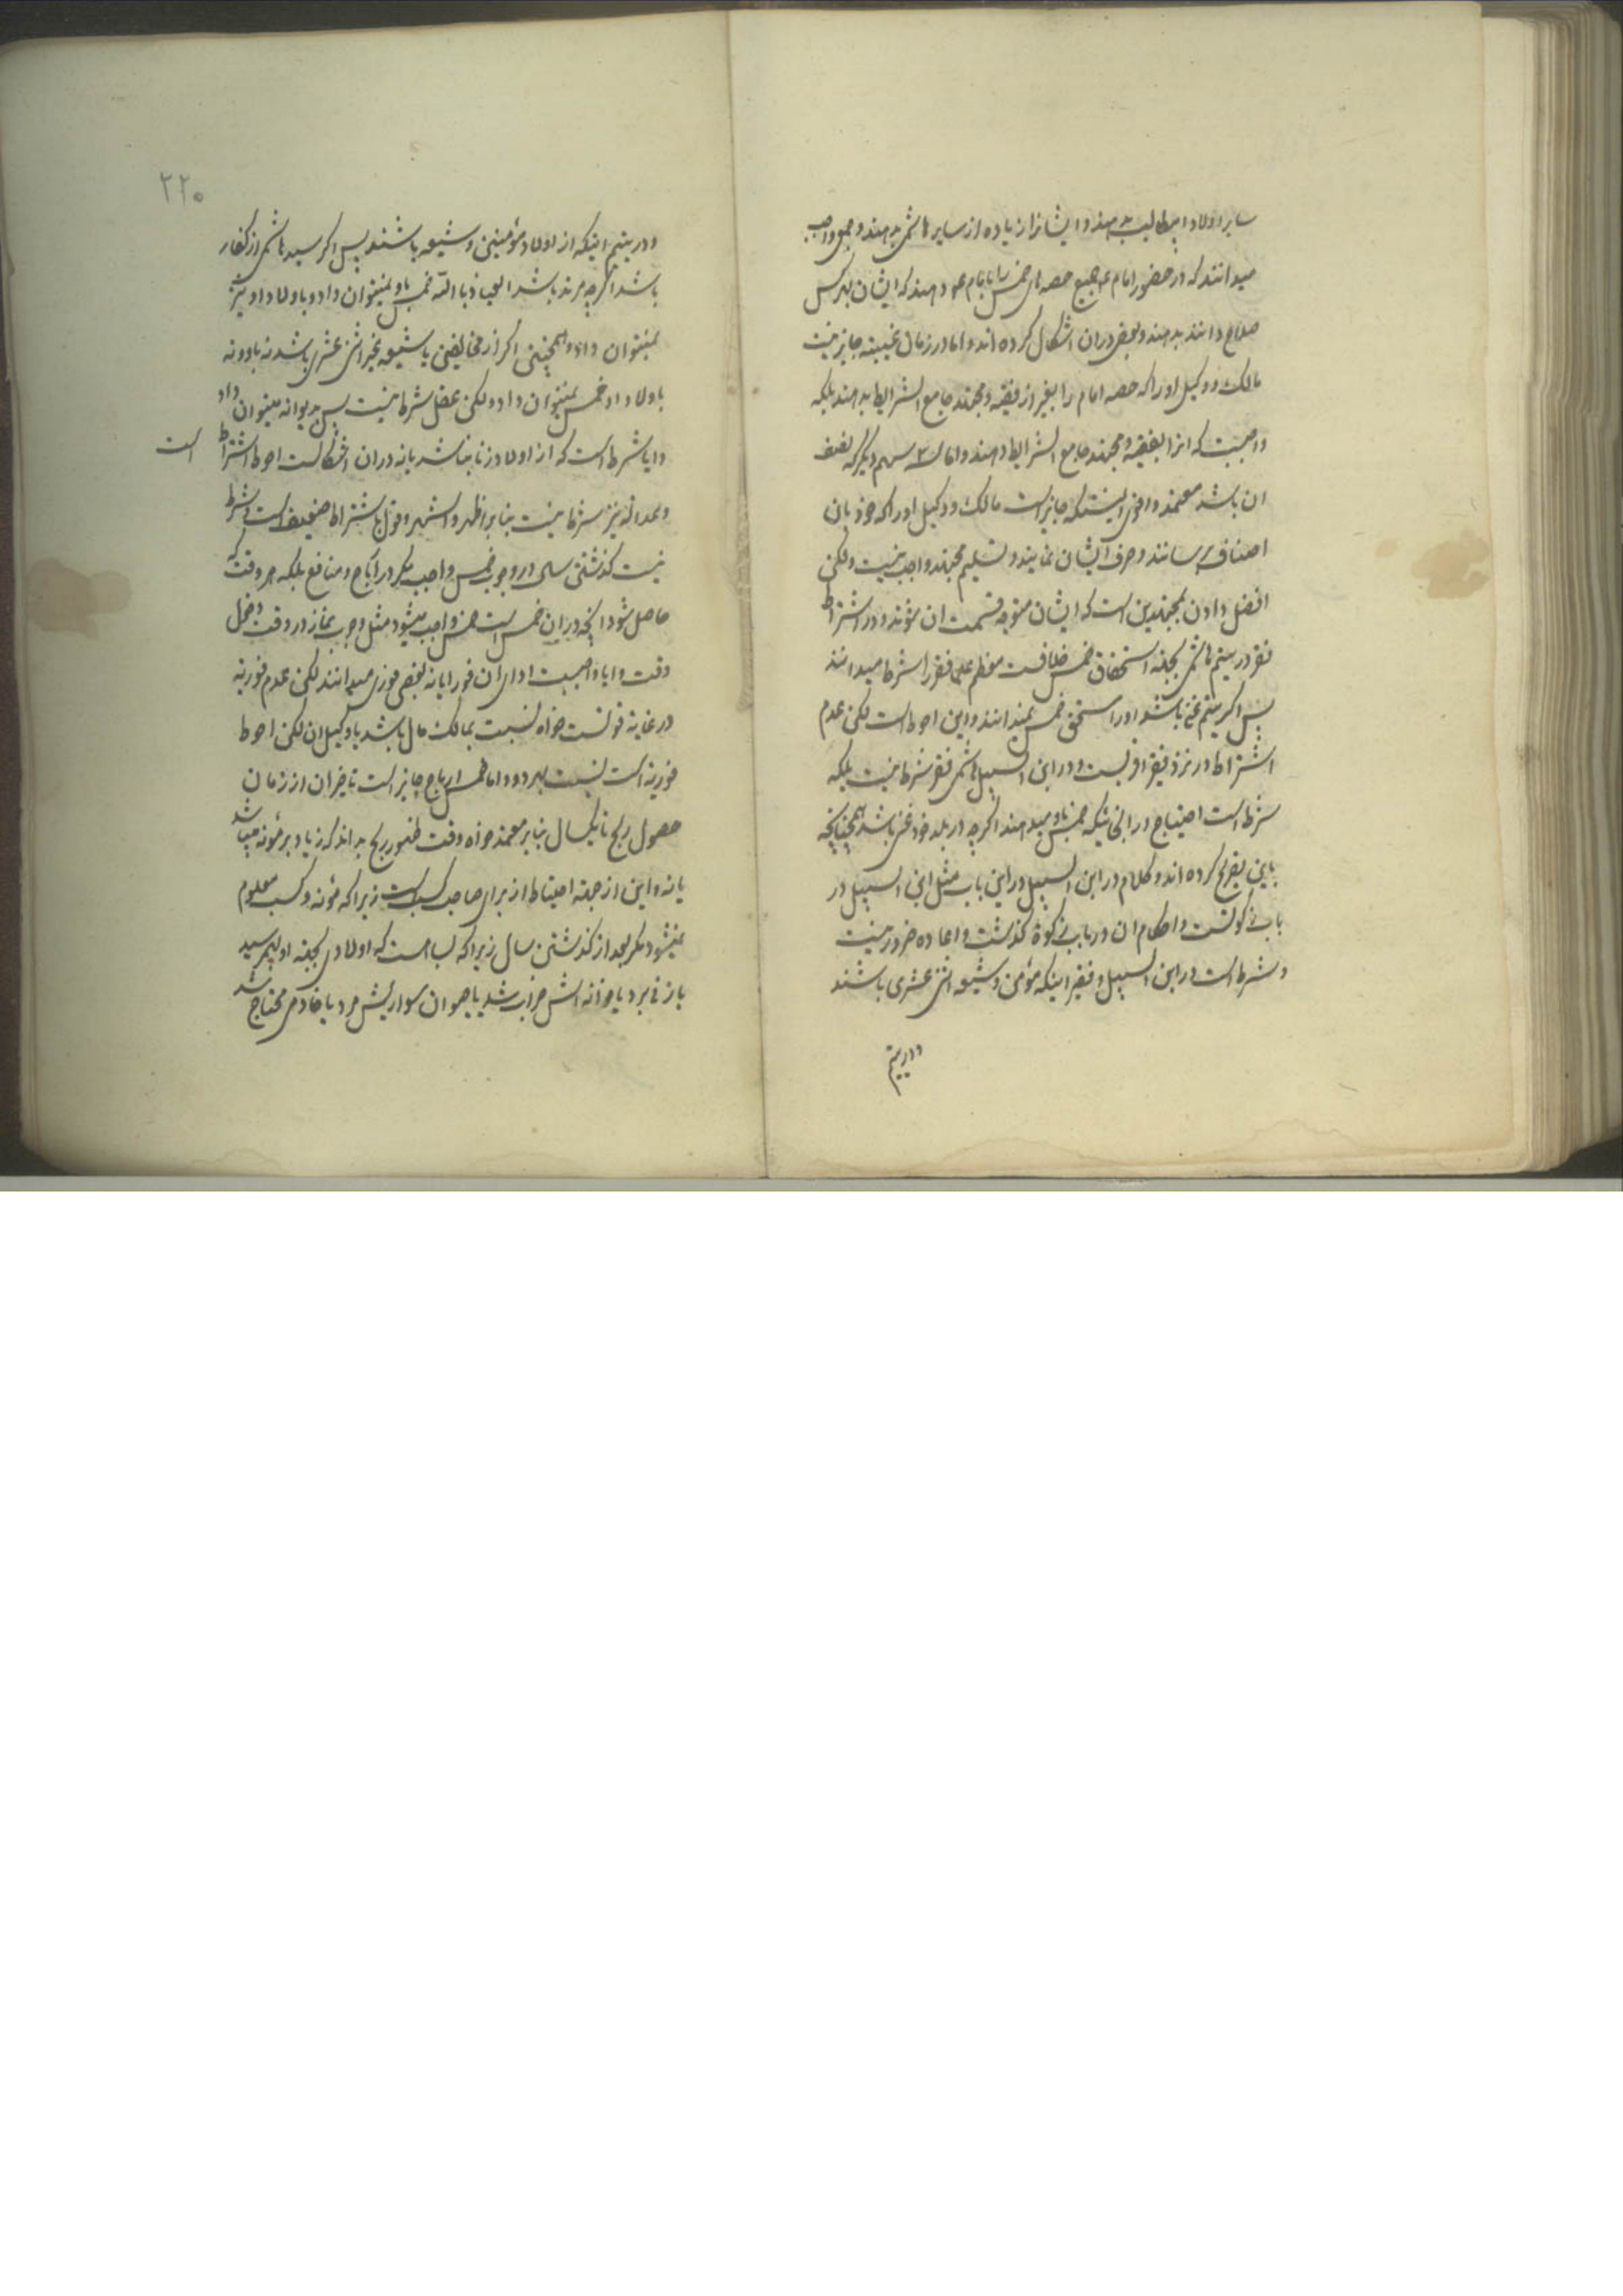 سایر اولاد ابیطالب بدهند و ایشانرا زیاده از سایر هاشمی بدهند و جمعی واجب
میدانند که در حضور امام ع جمیع حصه های خمس را بامام ع دهند که ایشان بهر کس
صلاح دانند بدهند و بعضی در ان اشکال کرده اند و اما در زمان غیبته جایز نیست
مالک و وکیل او را که حصه امام را بغیر از فقیه و مجتهد جامع الشرایط بدهند بلکه
واجبست که انرا بفقیه و مجتهد جامع الشرایط دهند و اما سه سهم دیگر که نصف
ان باشد معتمد و اقوی اینستکه جایز است مالک و وکیل او را که خود بان
اصناف برسانند و صرف ایشان نمایند و تسلیم مجتهد واجب نیست ولکن
افضل دادن بمجتهدین است که ایشان متوجه قسمت ان شوند و در اشتراط
فقر در یتیم هاشمی بجهة استحقاق خمس خلافست معظم علما فقر را شرط میدانند
پس اگر یتیم غنی باشد او را مستحق خمس نمیدانند و این احوط است لکن عدم
اشتراط در نزد فقیر اقویست و در ابن السبیل هاشمی فقر شرط نیست بلکه
شرط است احتیاج در انجائیکه خمس باو میدهند اگرچه در بلد خود غنی باشد همچنانکه
باین تصریح کرده اند و کلام در ابن السبیل در این باب مثل ابن السبیل در
باب زکوتست و احکام ان در باب زکوة گذشت و اعاده ضرور نیست
و شرط است در ابن السبیل و فقیر اینکه مؤمن و شیعه اثنی عشری باشند
و در یتیم
۲۲۰
و در یتیم اینکه از اولاد مؤمنین و شیعه باشند پس اگر سید هاشمی از کفار
باشد اگرچه مرتد باشد العیاذ بالله خمس باو نمیتوان داد و باولاد او نیز
نمیتوان داد و همچنین اگر از مخالفین یا شیعه غیر اثنی عشری باشد نه باو و نه
باولاد او خمس نمیتوان داد و لکن عقل شرط نیست پس بدیوانه میتوان داد
و ایا شرط است که از اولاد زنا نباشد یا نه در ان اشکالست احوط اشتراط است
و عدالة نیز شرط نیست بنابر اظهر و اشهر و قول باشتراط ضعیف است و شرط
نیست گذشتن سال در وجوب خمس واجب مگر در ارباح و منافع بلکه هر وقت که
حاصل شود انچه در ان خمس است خمس واجب میشود مثل وجوب نماز در وقت دخول
وقت و ایا واجبست ادای ان فورا یا نه بعضی فوری میدانند لکن عدم فوریة
در غایة قوتست خواه نسبت بمالک مال باشد یا وکیل ان لکن احوط
فوریة است نسبت بهر دو و اما خمس ارباح جایز است تاخیر ان از زمان
حصول ربح تا یکسال بنابر معتمد خواه وقت ظهور ربح بداند که زیاد بر مؤنه میباشد
یا نه و این از جهة احتیاط از برای صاحب کسب است زیرا که مؤنه و کسب معلوم
نمیشود مگر بعد از گذشتن سال زیرا که بسا هست که اولادی بجهة او بهم رسید
یا زنی برد یا خانه اش خراب شد یا حیوان سواریش مرد یا خادمی محتاج شد